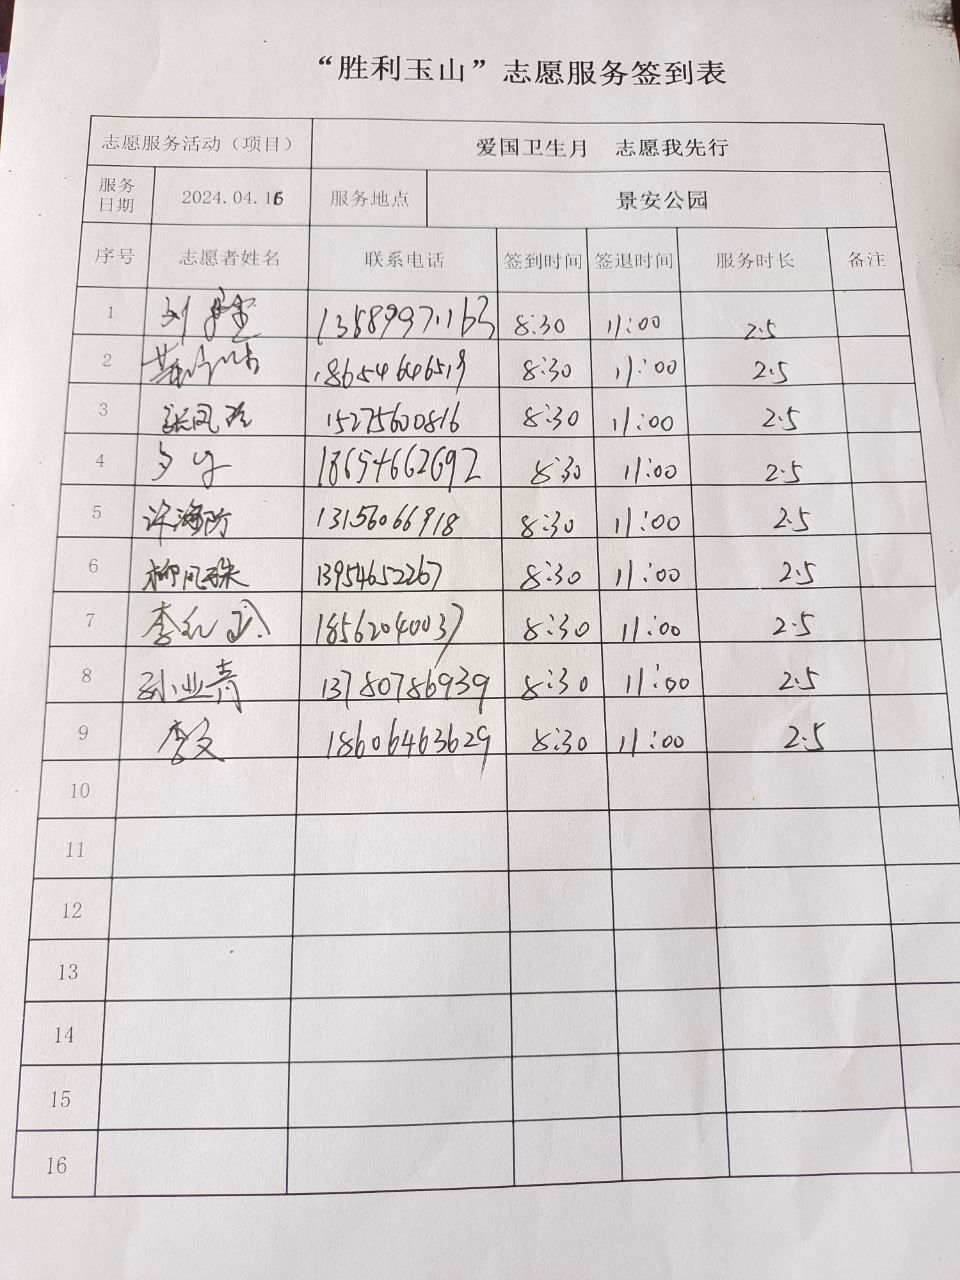 “胜利玉山”志愿服务签到表
志愿服务活动（项目） 爱国卫生月 志愿我先行
服务日期 2024.04.16 服务地点 景安公园
序号 志愿者姓名 联系电话 签到时间 签退时间 服务时长 备注
1 刘 13589971163 8:30 11:00 2.5
2 18654646519 8:30 11:00 2.5
3 张凤玲 15275600816 8:30 11:00 2.5
4 18654662692 8:30 11:00 2.5
5 许海防 13156066918 8:30 11:00 2.5
6 柳凤珠 13954652267 8:30 11:00 2.5
7 李 18562040037 8:30 11:00 2.5
8 孙业青 13780786939 8:30 11:00 2.5
9 李文 18606463629 8:30 11:00 2.5
10
11
12
13
14
15
16